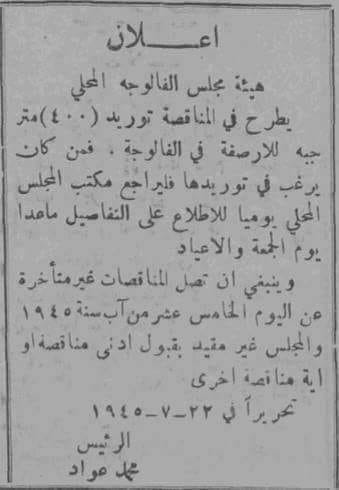 اعـــلان
هيئة مجلس الفالوجه المحلي
يطرح في المناقصة توريد (٤٠٠) متر
جبه للارصفة في الفالوجة . فمن كان
يرغب في توريدها فليراجع مكتب المجلس
المحلي يوميا للاطلاع على التفاصيل ماعدا
يوم الجمعة والاعياد
وينبغي ان تصل المناقصات غير متأخرة
عن اليوم الخامس عشر من آب سنة ١٩٤٥
والمجلس غير مقيد بقبول ادنى مناقصة او
اية مناقصة اخرى
تحريراً في ٢٢-٧-١٩٤٥
الرئيس
محمد عواد